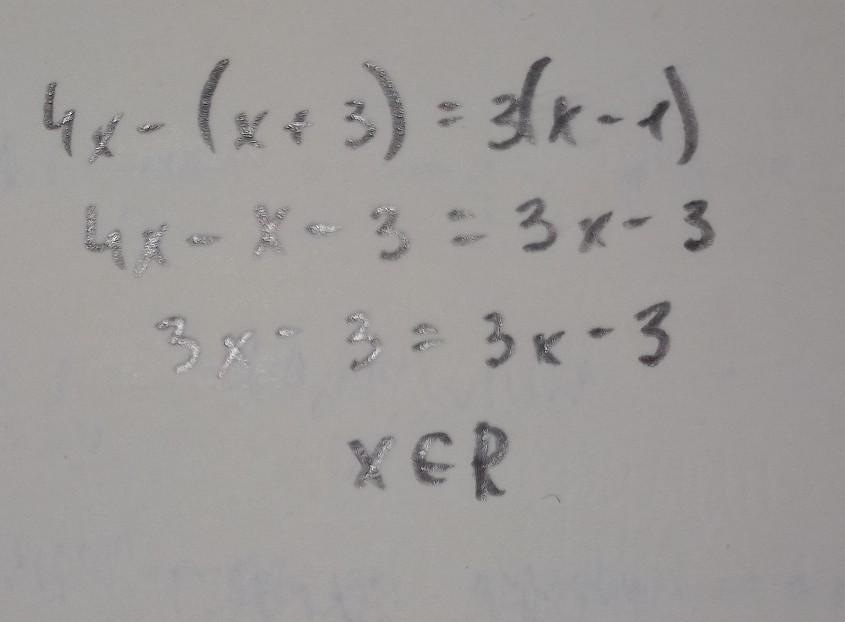 4x - (x + 3) = 3(x - 1)
4x - x - 3 = 3x - 3
3x - 3 = 3x - 3
x ∈ R